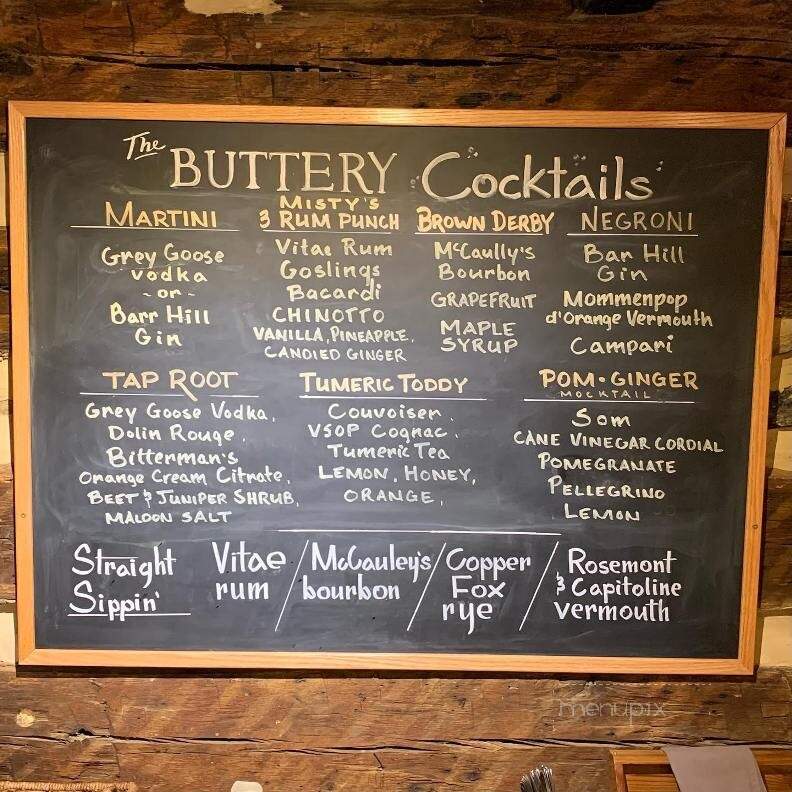 The
BUTTERY Cocktails
MARTINI
Grey Goose
vodka
- or -
Barr Hill
Gin
MISTY'S
3 RUM PUNCH
Vitae Rum
Goslings
Bacardi
CHINOTTO
VANILLA, PINEAPPLE,
CANDIED GINGER
BROWN DERBY
McCaully's
Bourbon
GRAPEFRUIT
MAPLE
SYRUP
NEGRONI
Bar Hill
Gin
Mommenpop
d'Orange Vermouth
Campari
TAP ROOT
Grey Goose Vodka,
Dolin Rouge,
Bitterman's
Orange Cream Citrate,
BEET & JUNIPER SHRUB,
MALDON SALT
TUMERIC TODDY
Couvoiser,
VSOP Cognac,
Tumeric Tea
LEMON, HONEY,
ORANGE,
POM-GINGER
MOCKTAIL
Som
CANE VINEGAR CORDIAL
POMEGRANATE
PELLEGRINO
LEMON
Straight
Sippin'
Vitae
rum /
McCauley's
bourbon /
Copper
Fox
rye /
Rosemont
& Capitoline
vermouth
menupix